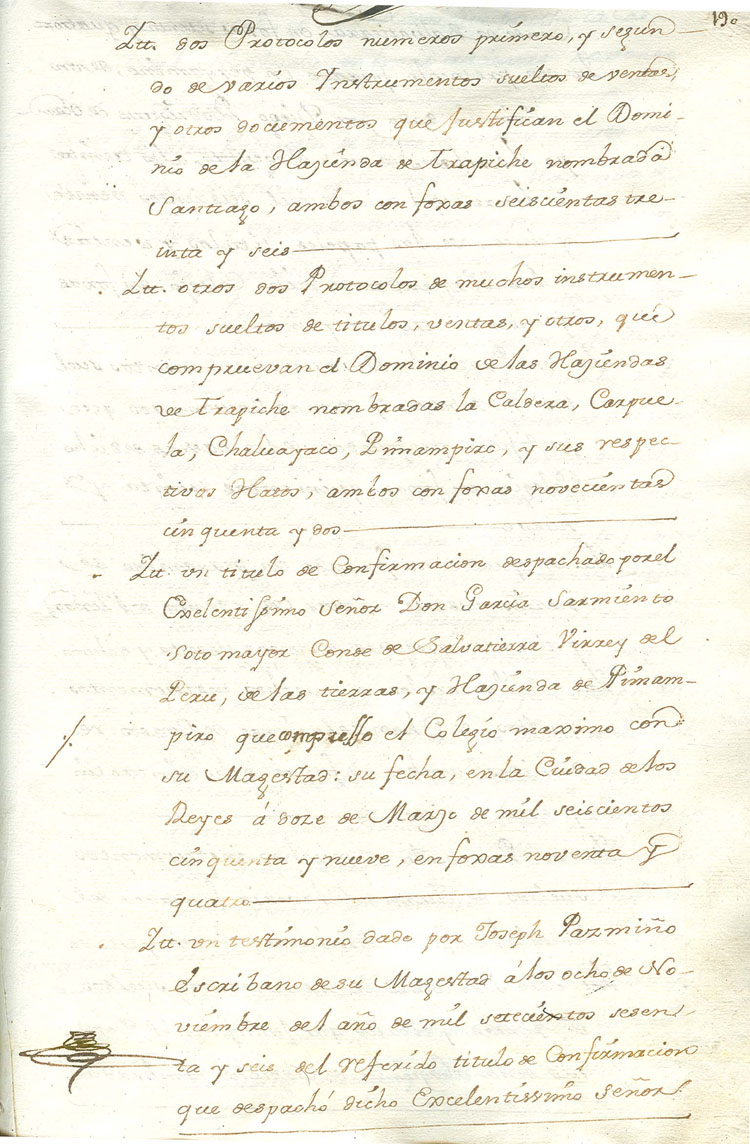 190
Itt. dos Protocolos numeros primero, y segun-
do de varios Instrumentos sueltos de ventas,
y otros documentos que Justifican el Domi-
nio de la Hazienda de Trapiche nombrada
Santiago, ambos con foxas seiscientas tre-
inta y seis
Itt. otros dos Protocolos de muchos instrumen-
tos sueltos de titulos, ventas, y otros, que
compruevan el Dominio de las Haziendas
de Trapiche nombradas la Caldera, Carpue-
la, Chaluayaco, Pimampiro, y sus respec-
tivos Hatos, ambos con foxas novecientas
cinquenta y dos
Itt. un titulo de Confirmacion despachado por el
Exelentissimo Señor Don Garcia Sarmiento
Sotomayor Conde de Salvatierra Virrey del
Peru, de las tierras, y Hazienda de Pimam-
piro que compusso el Colegio maximo con
su Magestad: su fecha, en la Ciudad de los
Reyes á doze de Marzo de mil seiscientos
cinquenta y nueve, en foxas noventa y
quatro
Itt. un testimonio dado por Joseph Pazmiño
Escribano de su Magestad á los ocho de No-
viembre del año de mil setecientos sesen-
ta y seis del referido titulo de Confirmacion
que despachó dicho Excelentissimo Señor